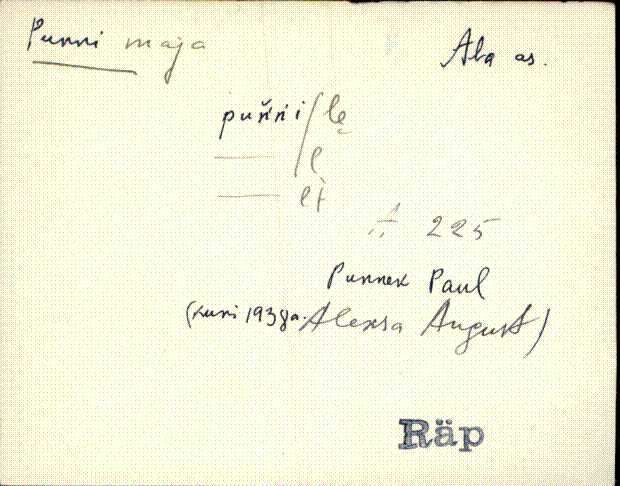 Punni maja
Ala as.
puńńi/le
— /l
— lt
A 225
Punnek Paul
(kuni 1938a. Alexsa August)
Räp